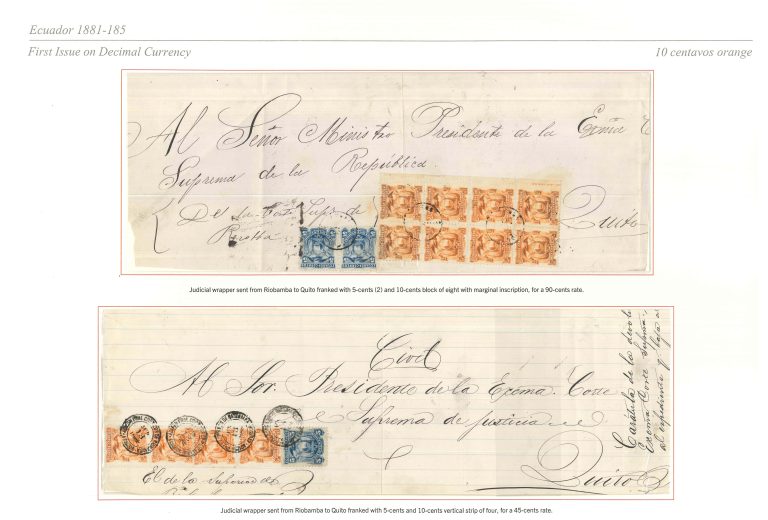 Ecuador 1881-185
First Issue on Decimal Currency
10 centavos orange
Al Señor Ministro Presidente de la Exma C
Suprema de la República.
De la Corte Supr. de
Quito
Judicial wrapper sent from Riobamba to Quito franked with 5-cents (2) and 10-cents block of eight with marginal inscription, for a 90-cents rate.
Civil
Al Sor. Presidente de la Exema. Corte
Suprema de Justicia
Quito
El de la Superior de
Carátula de lo devolu
Exema Corte Suprema,
al expediente q.
Judicial wrapper sent from Riobamba to Quito franked with 5-cents and 10-cents vertical strip of four, for a 45-cents rate.